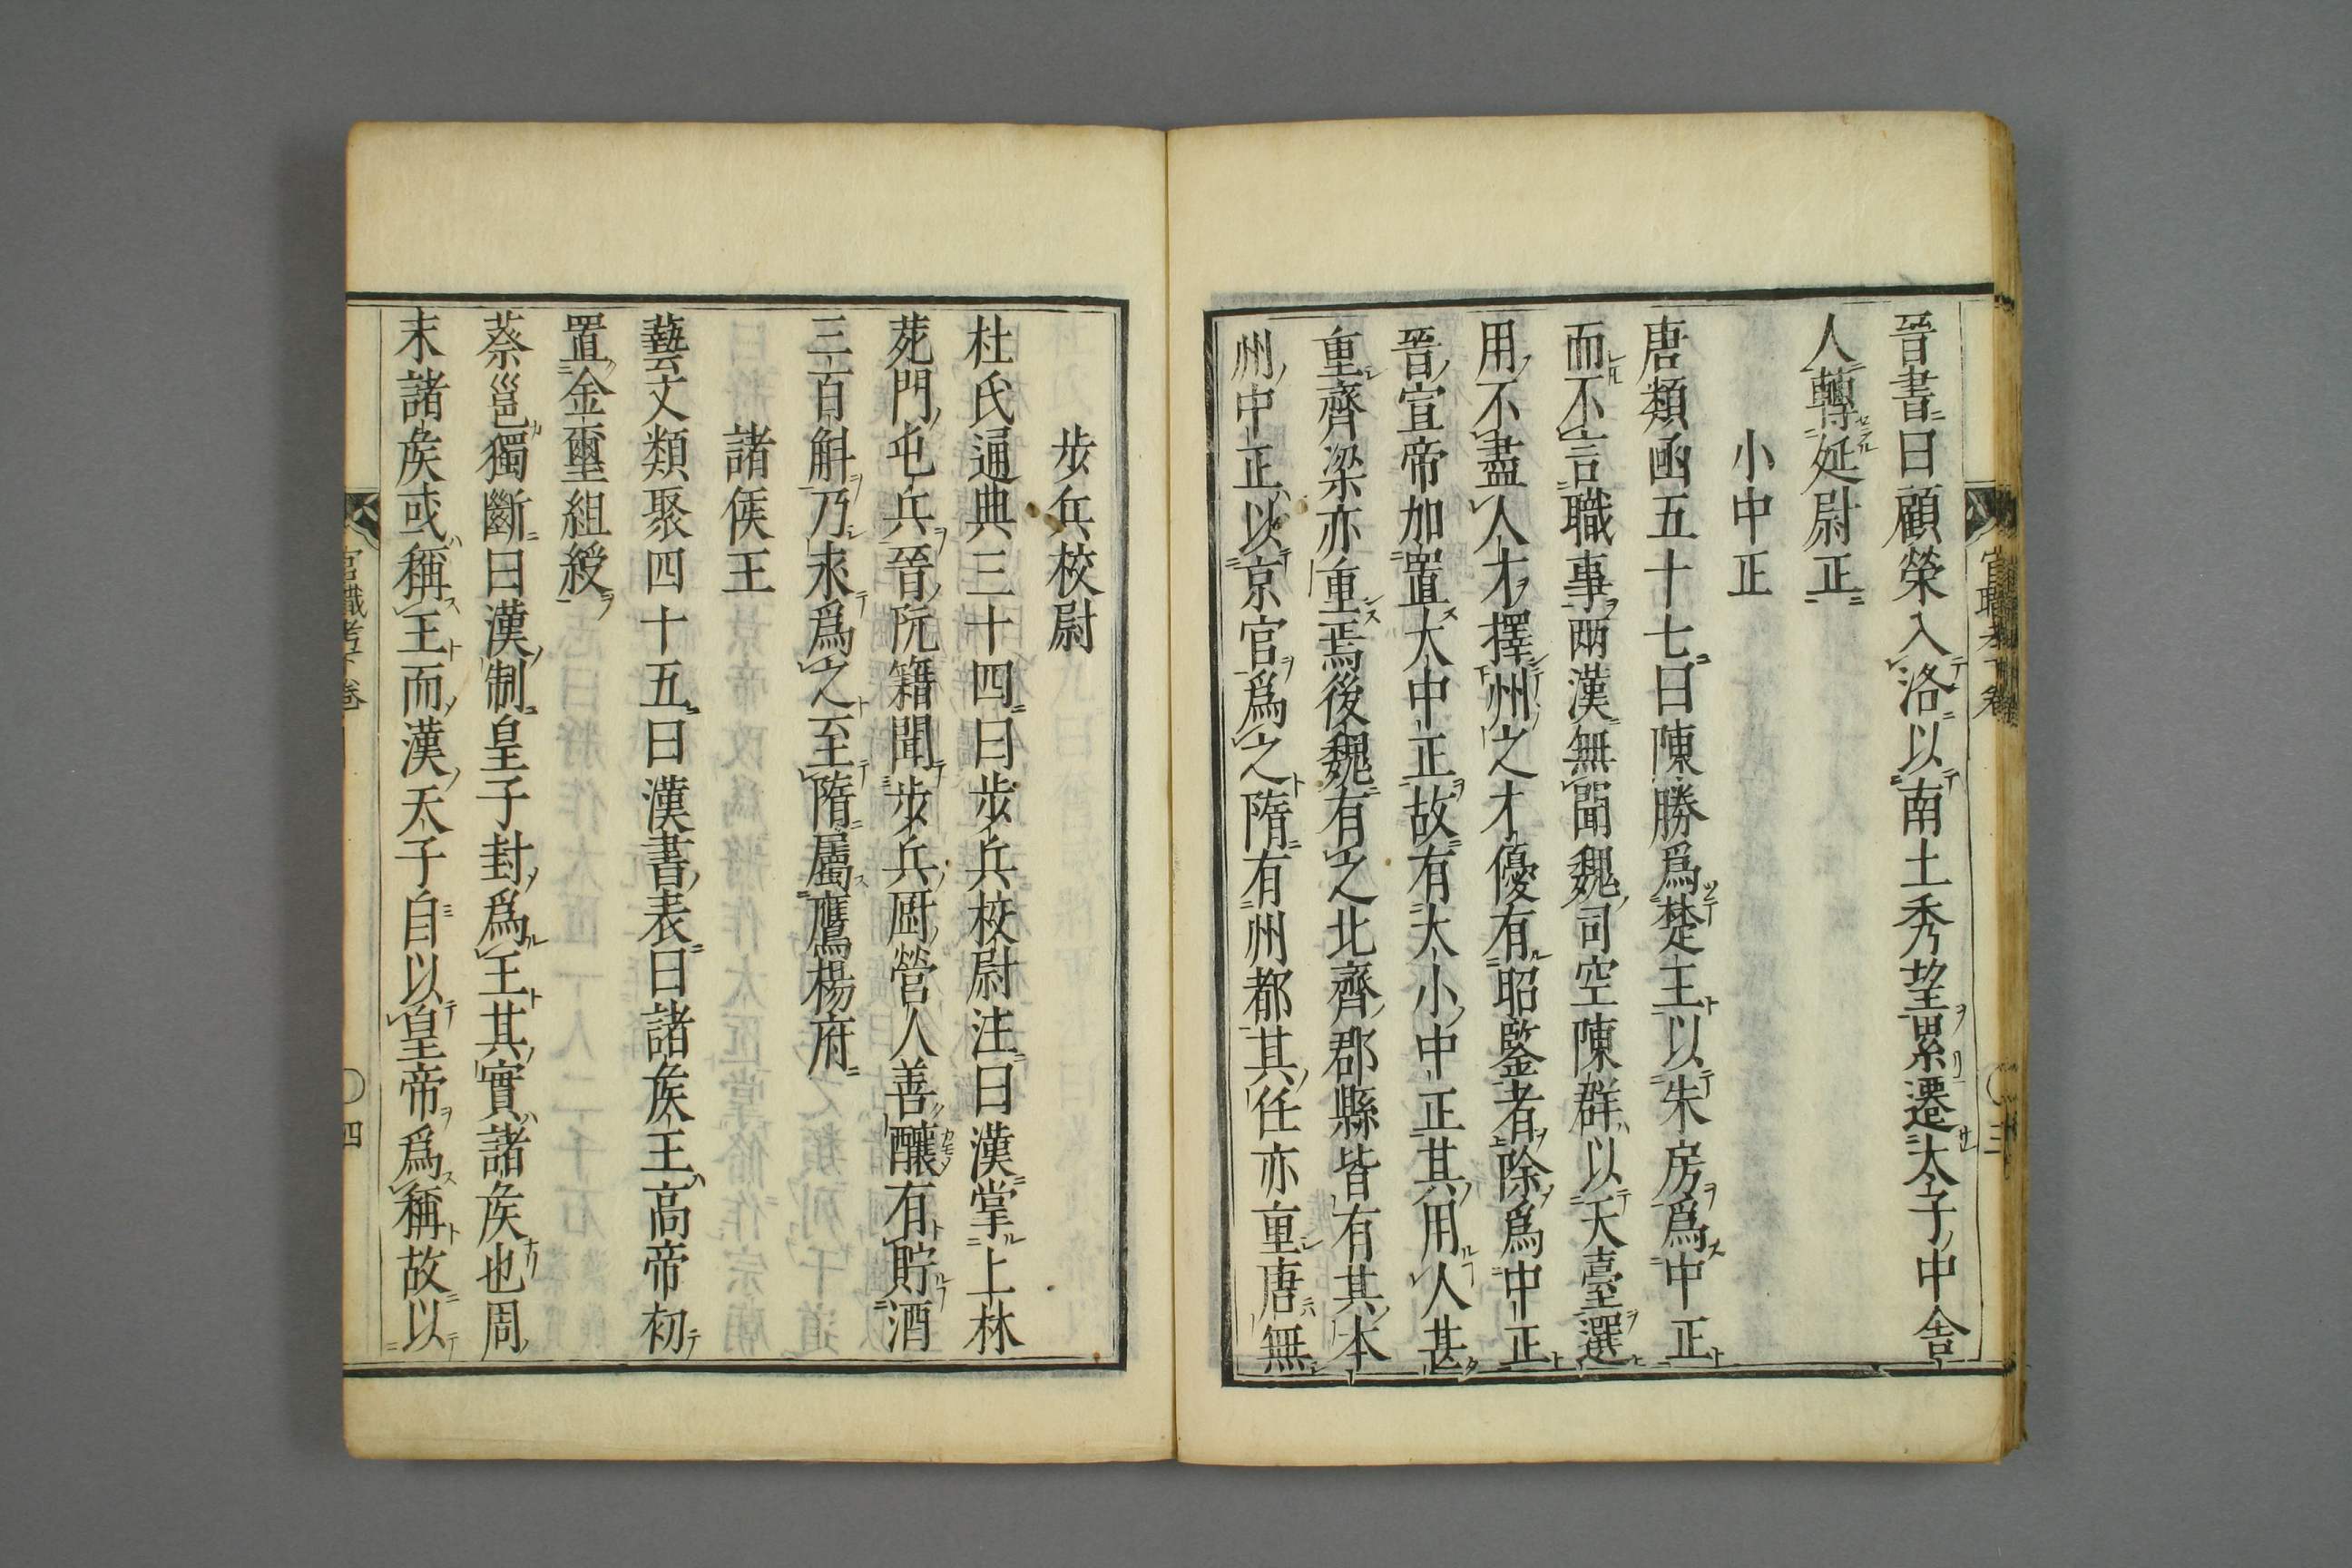 晉書曰顧榮入洛以南土秀望累遷太子中舍
人轉延尉正
小中正
唐類函五十七曰陳勝爲楚王以朱房爲中正
而不言職事兩漢無聞魏司空陳群以天臺選
用不盡人才擇州之才優有昭鑒者除爲中正
晉宣帝加置大中正故有大小中正其用人甚
重齊梁亦重焉後魏有之北齊郡縣皆有其本
州中正以京官爲之隋有州都其任亦重唐無
官職考下卷
三
步兵校尉
杜氏通典三十四曰步兵校尉注曰漢掌上林
苑門屯兵晉阮籍聞步兵厨營人善釀有貯酒
三百斛乃求爲之至隋屬鷹楊府
諸侯王
藝文類聚四十五曰漢書表曰諸侯王高帝初
置金璽組綬
蔡邕獨斷曰漢制皇子封爲王其實諸侯也周
末諸侯或稱王而漢天子自以皇帝爲稱故以
官職考下卷
四